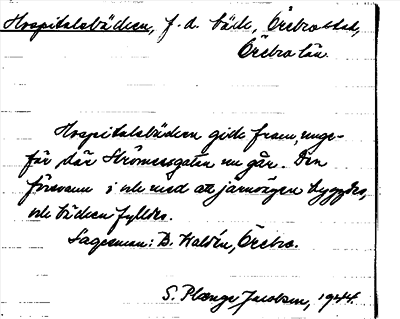 Hospitalsbäcken, f.d. bäck, Örebro stad,
Örebro län.
Hospitalsbäcken gick fram, unge-
fär där Strömersgatan nu går. Den
försvann i och med att järnvägen byggdes,
och bäcken fylldes.
Sagesman: D. Waldén, Örebro.
S. Plænge Jacobson, 1944.